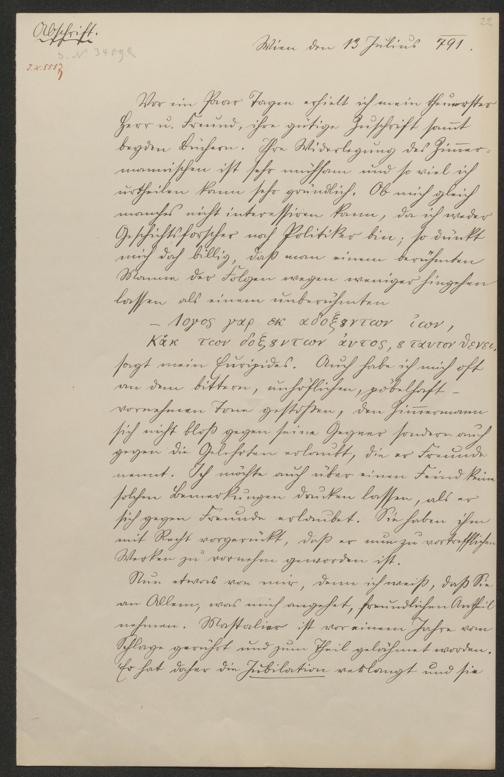 22
Abschrift.
Wien den 13 Julius 791.
Vor ein Paar Tagen erhielt ich mein theuerster
Herr u. Freund, ihre gütige Zuschrift sammt
beyden Büchern. Ihre Widerlegung des Zimmer-
mannischen ist sehr mühsam und so viel ich
urtheilen kann sehr gründlich. Ob mich gleich
manches nicht interessiren kann, da ich weder
Geschichtsforscher noch Politiker bin; so dünkt
mich doch billig, daß man einem berühmten
Manne der Folgen wegen weniger hingehen
lassen als einem unberühmten
– λογος γαρ εκ αδοξȣντων ἰων,
Κἀκ των δοξȣντων ἀντος, ȣ ταυτον σθενει.
sagt mein Euripides. Auch habe ich mich oft
an dem bittern, unhöflichen, pöbelhaft-
vornehmen Tone gestoßen, den Zimmermann
sich nicht bloß gegen seine Gegner sondern auch
gegen die Gelehrten erlaubt, die er Freunde
nennt. Ich möchte auch über einen Feind keine
solchen Bemerkungen drucken lassen, als er
sich gegen Freunde erlaubet. Sie haben ihm
mit Recht vorgerückt, daß er nun zu vortrefflichen
Werken zu vornehm geworden ist.
Nun etwas von mir, denn ich weiß, daß Sie
an Allem, was mich angehet, freundlichen Antheil
nehmen. Mastalier ist vor einem Jahre vom
Schlage gerührt und zum Theil gelähmet worden.
Er hat daher die Jubilation verlangt und sie